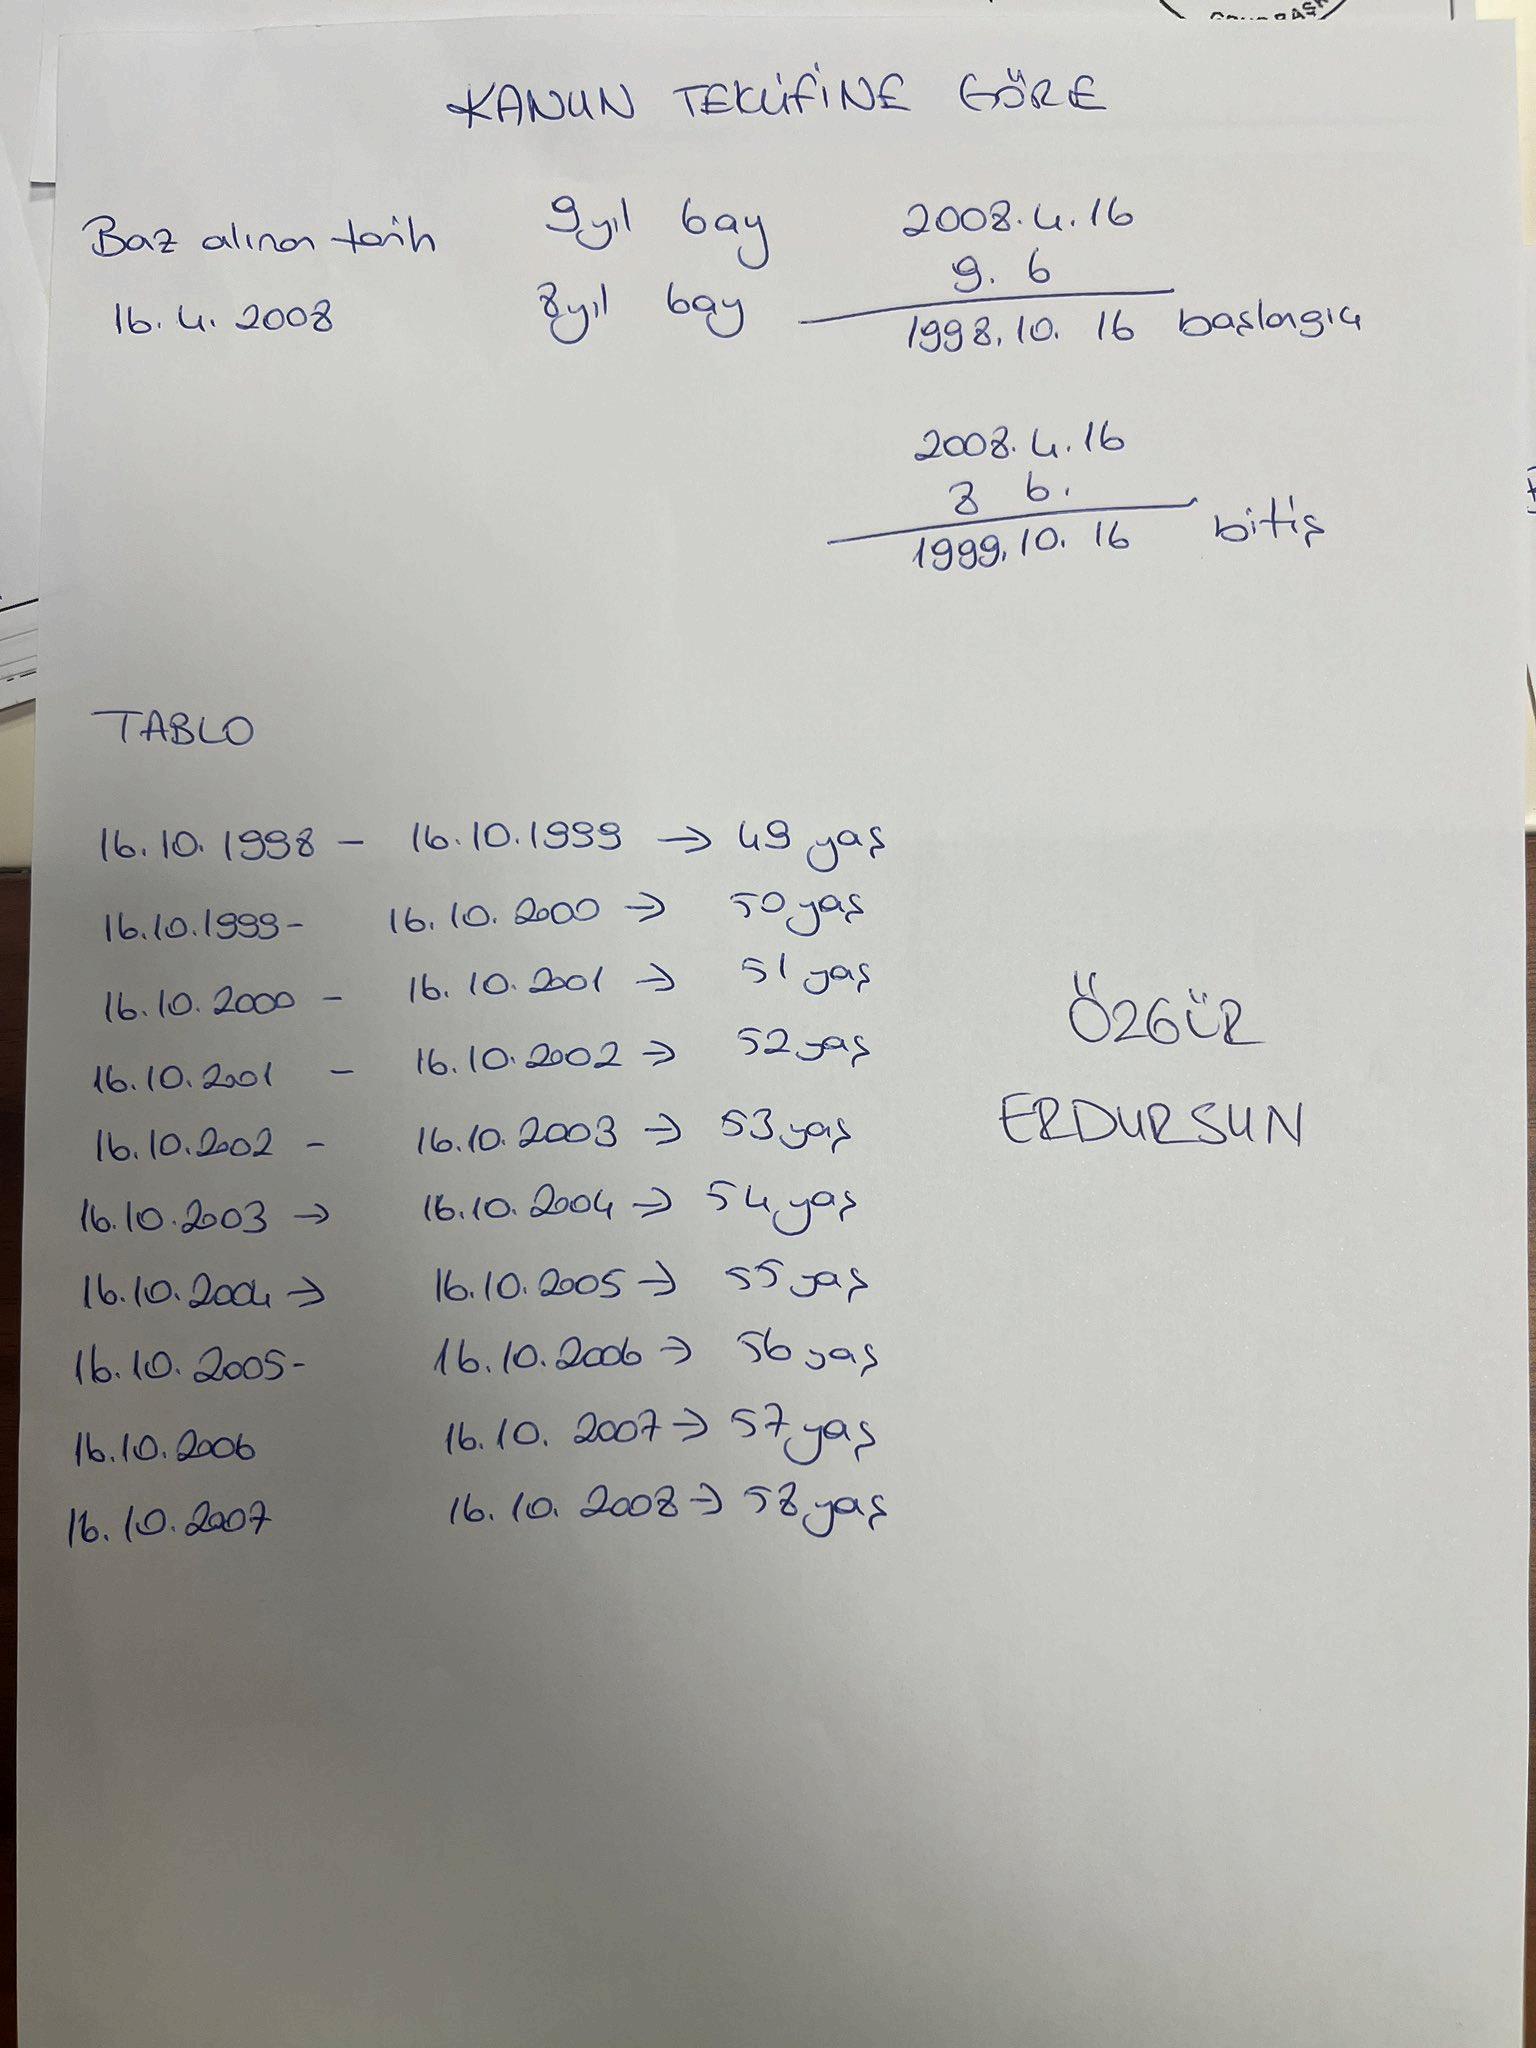 KANUN TEKLİFİNE GÖRE
Baz alınan tarih 9yıl 6ay 2008.4.16
9. 6
16.4.2008 8yıl 6ay 1998.10.16 başlangıç
2008.4.16
8 6.
1999.10.16 bitiş
TABLO
16.10.1998 - 16.10.1999 → 49 yaş
16.10.1999- 16.10.2000 → 50 yaş
16.10.2000 - 16.10.2001 → 51 yaş
16.10.2001 - 16.10.2002 → 52 yaş
16.10.2002 - 16.10.2003 → 53 yaş
16.10.2003 → 16.10.2004 → 54 yaş
16.10.2004 → 16.10.2005 → 55 yaş
16.10.2005- 16.10.2006 → 56 yaş
16.10.2006 16.10.2007 → 57 yaş
16.10.2007 16.10.2008 → 58 yaş
ÖZGÜR
ERDURSUN